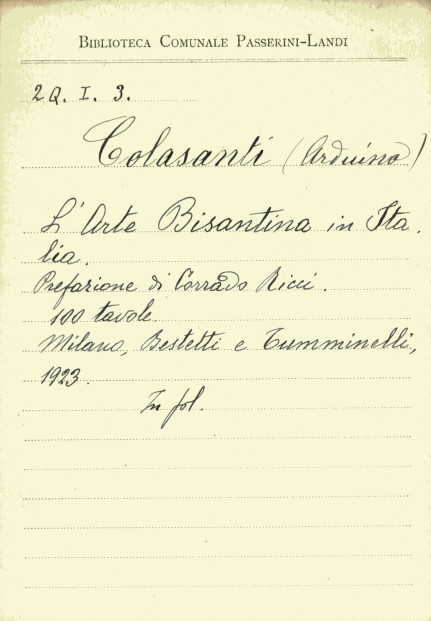 BIBLIOTECA COMUNALE PASSERINI-LANDI
2Q. I. 3.
Colasanti (Arduino)
L'Arte Bisantina in Ita.
lia.
Prefazione di Corrado Ricci.
100 tavole.
Milano, Bestetti e Tumminelli,
1923.
In fol.